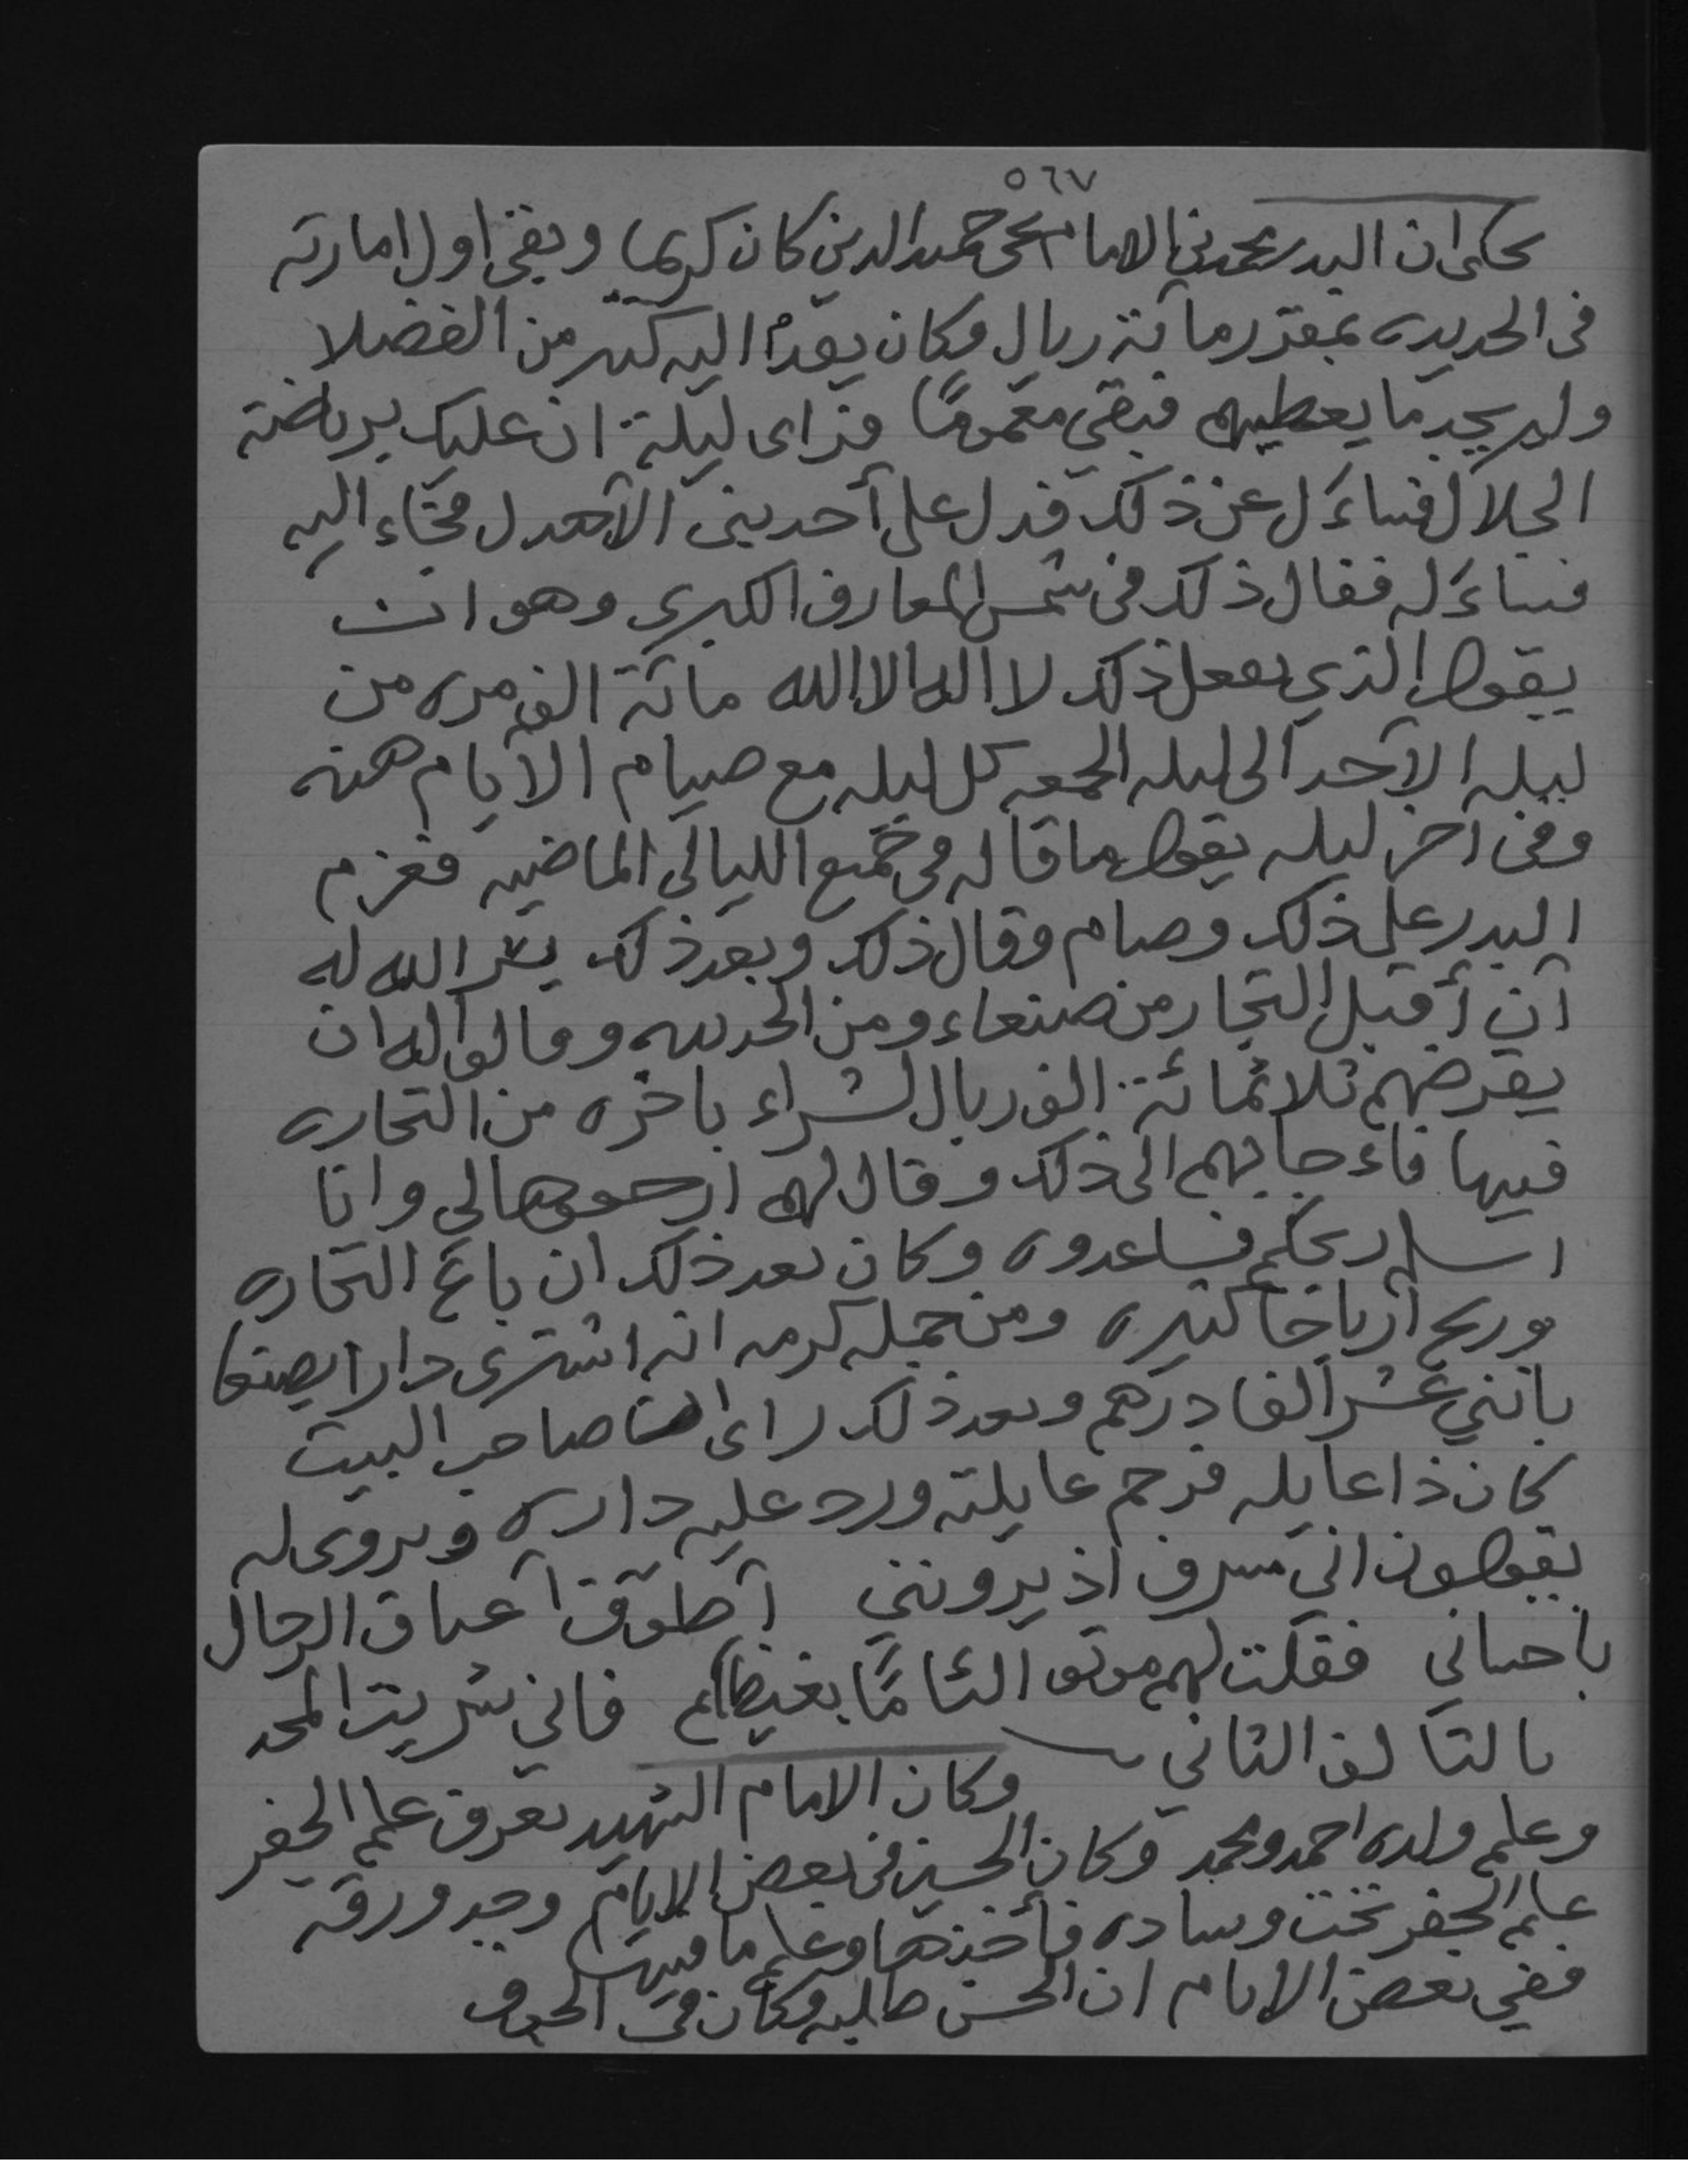 ٥٦٧
يحكى ان البدر محمد بن الامام يحي حميد الدين كان كريما وبقي اول امارته
في الحديده بمقرر مائة ريال وكان يفد اليه كثير من الفضلا
ولم يجد ما يعطيهم فبقي مغموما فرأى ليلة ان عليك برياضة
الجلال فساءَل عن ذلك فدل على أحد بني الأهدل فجاء اليه
فساءَله فقال ذلك في شمس المعارف الكبرى وهو ان
يقول الذي يفعل ذلك لا اله الا الله مائة الف مره من
ليله الأحد الى ليله الجمعه كل ليله مع صيام الأيام هذه
وفي آخر ليله يقول ما قاله في جميع الليالي الماضيه فعزم
البدر على ذلك وصام وقال ذلك وبعد ذلك يسر الله له
أن أقبل التجار من صنعاء ومن الحديده وقالوا له ان
يقرضهم ثلاثمائة الف ريال لشراء باخره من التجاره
فيها فاءجابهم الى ذلك وقال لهم ارجعوها لي وانا
اسلم ربحكم فساعدوه وكان بعد ذلك ان باع التجاره
وربح أرباحا كثيره ومن جمله كرمه انه اشترى دارا بصنعا
باثني عشر الفا درهم وبعد ذلك راى ان صاحب البيت
كان ذا عايله فرحم عايلته ورد عليه داره ويروى له
يقولون اني مسرف اذ يرونني أطوق أعناق الرجال
باحساني فقلت لهم موتوا لئاما بغيظكم فاني شريت المجد
بالتالف الفاني
وكان الامام الشهيد يعرف علم الجفر
وعلم ولده احمد ومحمد وكان الحسين في بعض الايام وجد ورقه
علم الجفر تحت وساده فأخذها وعلم ما فيها
ففي بعض الايام ان الحسن طلبه وكان في